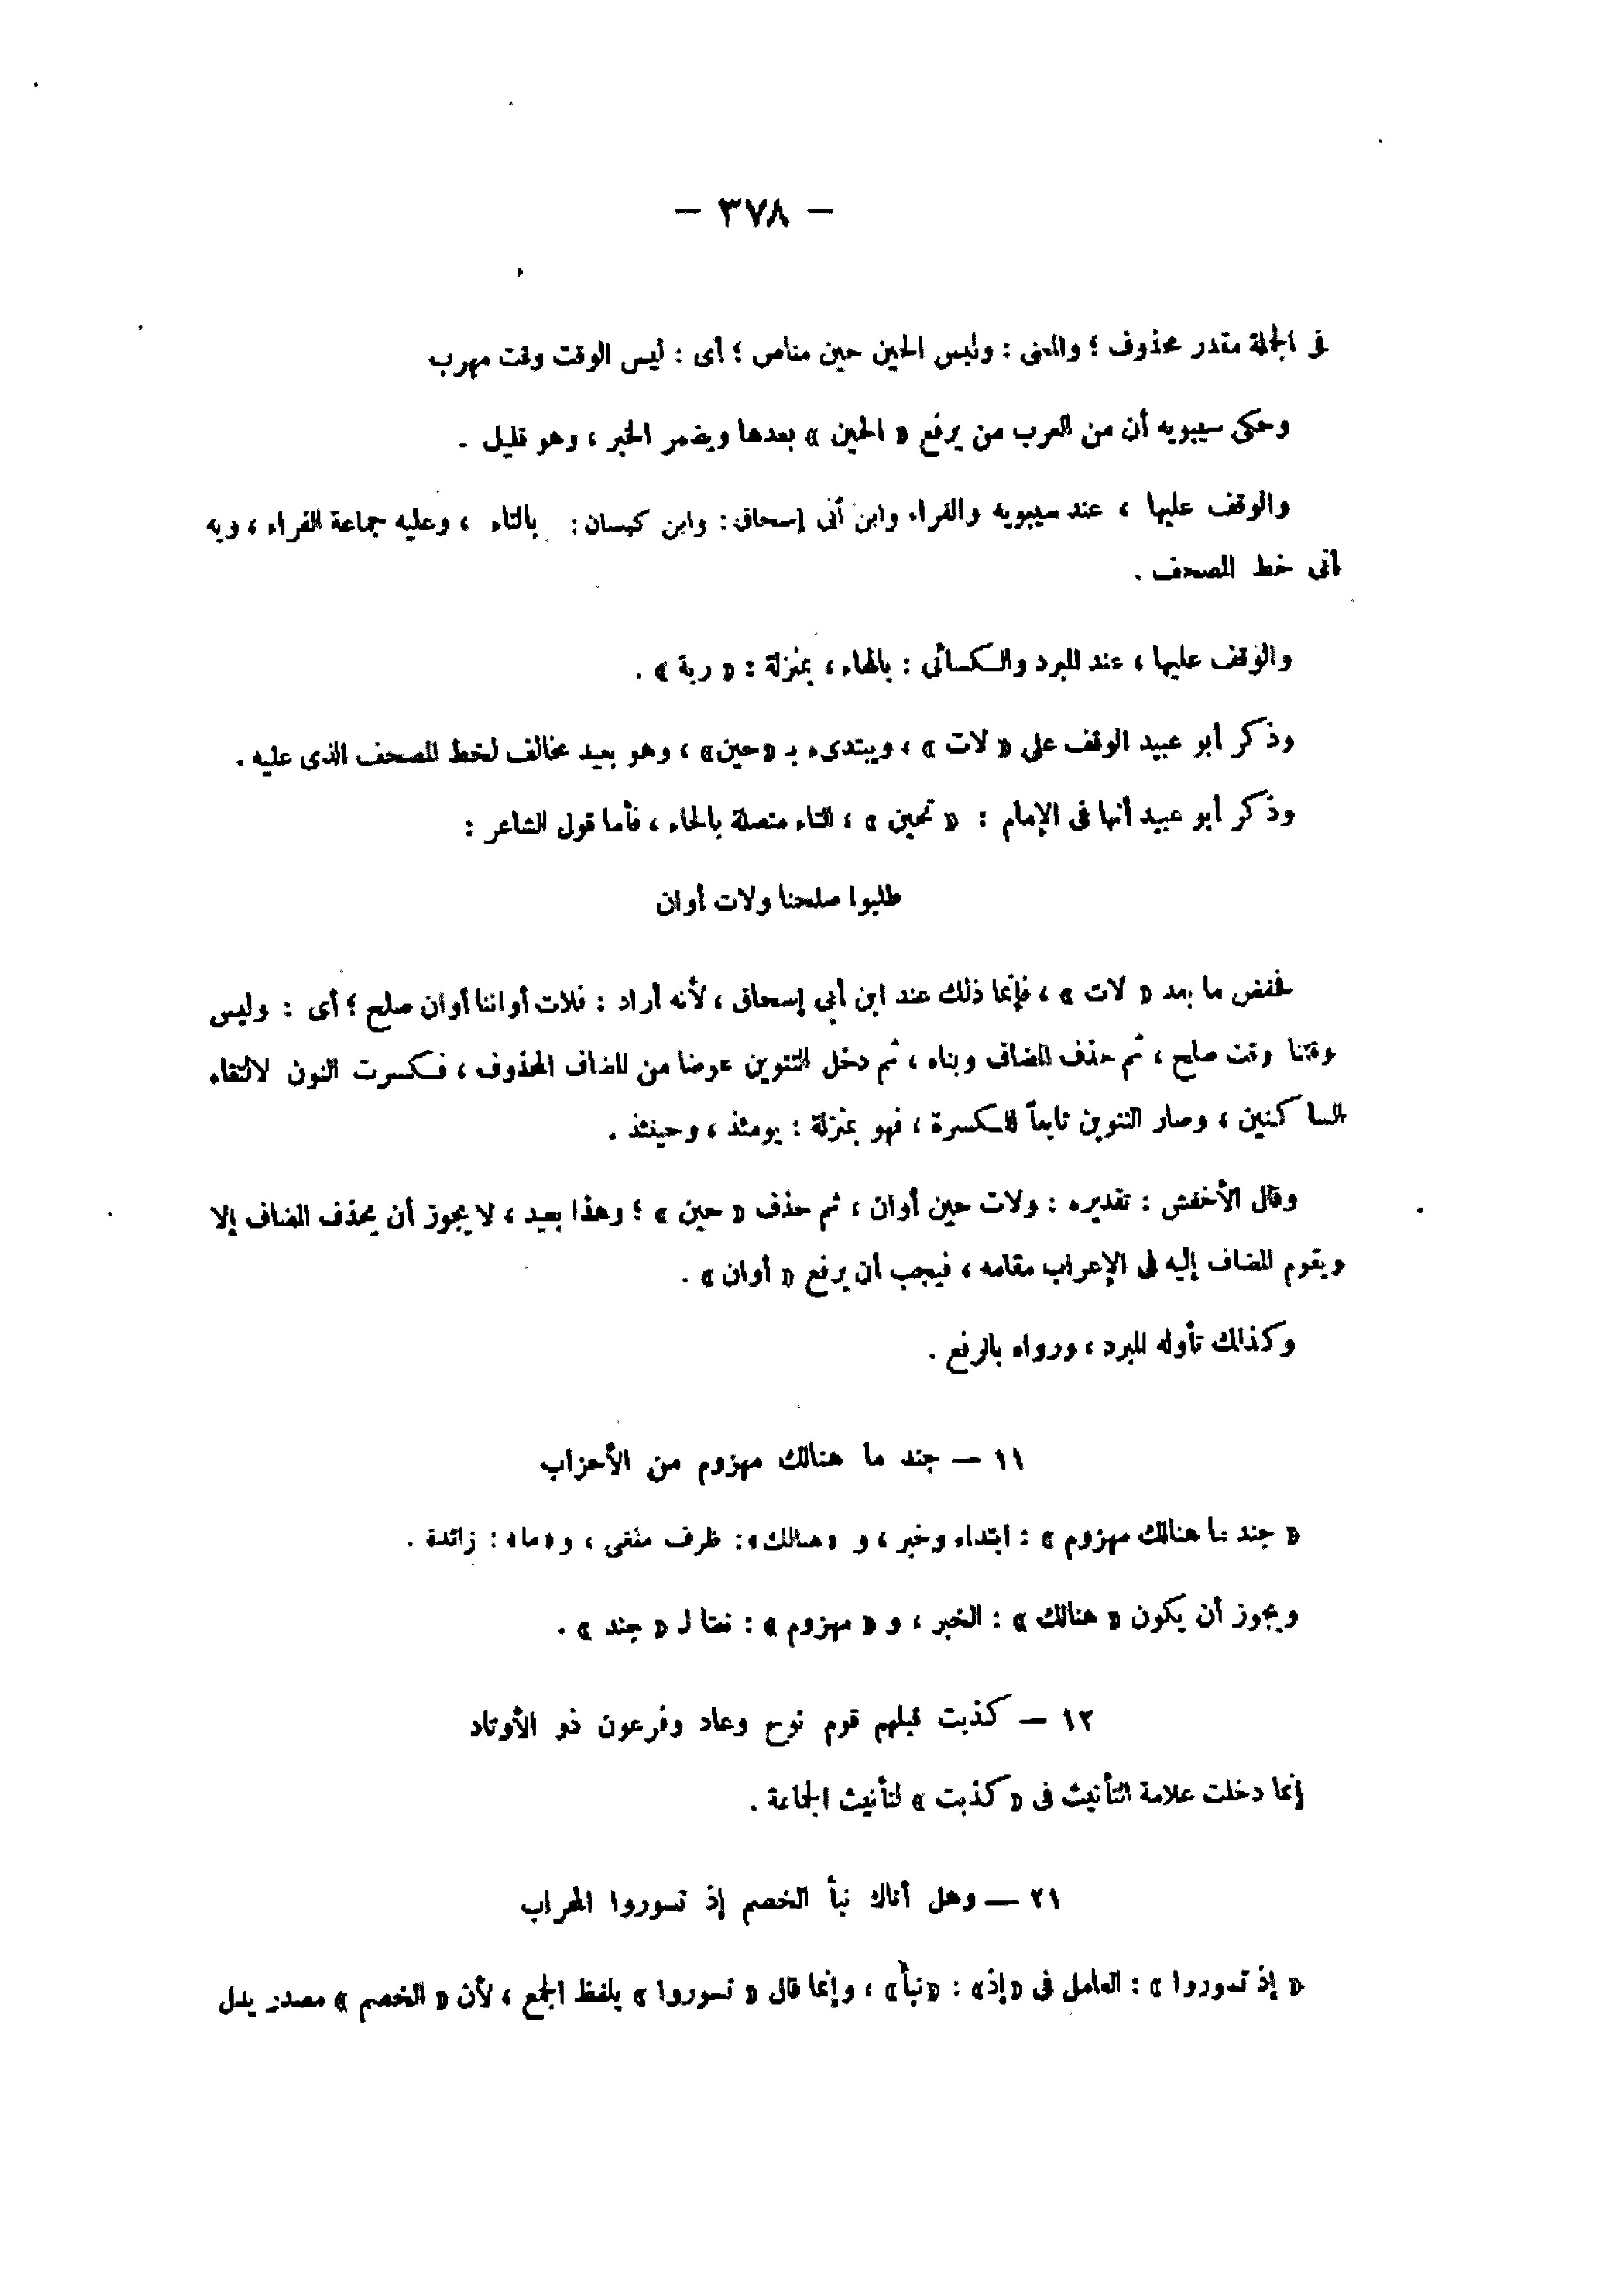 — ٣٧٨ —
فى الجملة مقدر محذوف ؛ والمعنى : وليس الحين حين مناص ؛ أى : ليس الوقت وقت مهرب
وحكى سيبويه أن من العرب من يرفع « الحين » بعدها ويضمر الخبر ، وهو قليل .
والوقف عليها ، عند سيبويه والفراء وابن أبى إسحاق : وابن كيسان : بالتاء ، وعليه جماعة القراء ، وبه
أتى خط المصحف .
والوقف عليها ، عند المبرد والكسائى : بالهاء ، بمنزلة : « ربة » .
وذكر أبو عبيد الوقف على « لات » ، ويبتدىء بـ «حين» ، وهو بعيد مخالف لخط المصحف الذى عليه .
وذكر أبو عبيد أنها فى الإمام : « تحين » ، التاء متصلة بالحاء ، فأما قول الشاعر :
طلبوا صلحنا ولات أوان
فخفض ما بعد « لات » ، فإنما ذلك عند ابن أبى إسحاق ، لأنه أراد : فلات أواننا أوان صلح ؛ أى : وليس
وقتنا وقت صلح ، ثم حذف المضاف وبناه ، ثم دخل التنوين عوضا من المضاف المحذوف ، فكسرت النون لالتقاء
الساكنين ، وصار التنوين تابعاً للكسرة ، فهو بمنزلة : يومئذ ، وحينئذ .
وقال الأخفش : تقديره : ولات حين أوان ، ثم حذف « حين » ؛ وهذا بعيد ، لا يجوز أن يحذف المضاف إلا
ويقوم المضاف إليه فى الإعراب مقامه ، فيجب أن يرفع « أوان » .
وكذلك تأوله المبرد ، ورواه بالرفع .
١١ — جند ما هنالك مهزوم من الأحزاب
« جند ما هنالك مهزوم » : ابتداء وخبر ، و «هنالك» : ظرف ملغى ، و «ما» : زائدة .
ويجوز أن يكون « هنالك » : الخبر ، و « مهزوم » : نعتا لـ « جند » .
١٢ — كذبت قبلهم قوم نوح وعاد وفرعون ذو الأوتاد
إنما دخلت علامة التأنيث فى « كذبت » لتأنيث الجماعة .
٢١ — وهل أتاك نبأ الخصم إذ تسوروا المحراب
« إذ تسوروا » : العامل فى «إذ» : «نبأ» ، وإنما قال « تسوروا » بلفظ الجمع ، لأن « الخصم » مصدر يدل